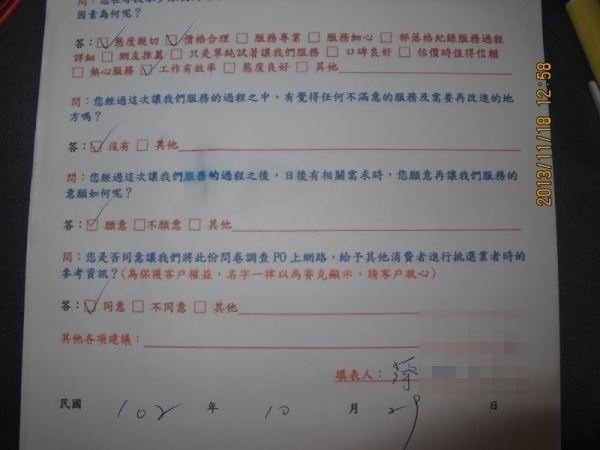 因素為何呢?
答：☑態度親切 ☑價格合理 □服務專業 □服務細心 □部落格紀錄服務過程
詳細 □網友推薦 □只是單純試著讓我們服務 □口碑良好 □估價時值得信賴
□熱心服務 ☑工作有效率 □態度良好 □其他
問：您經過這次讓我們服務的過程之中，有覺得任何不滿意的服務及需要再改進的地
方嗎？
答：☑沒有 □其他
問：您經過這次讓我們服務的過程之後，日後有相關需求時，您願意再讓我們服務的
意願如何呢？
答：☑願意 □不願意 □其他
問：您是否同意讓我們將此份問卷調查PO上網路，給予其他消費者進行挑選業者時的
參考資訊？(為保護客戶權益，名字一律以馬賽克顯示，請客戶放心)
答：☑同意 □不同意 □其他
其他各項建議：
填表人：蔡
民國 102 年 10 月 29 日
2013/11/18 12:58